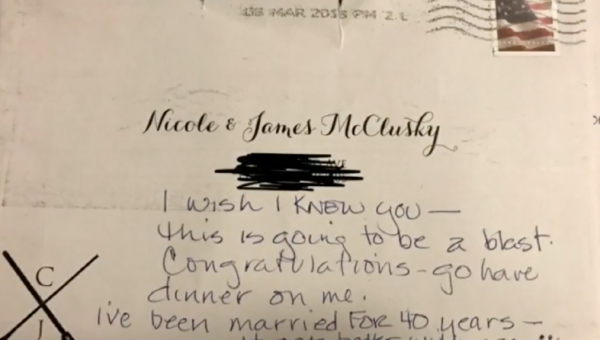 MAR PM
Nicole & James McClusky
I wish I KNEW you —
this is going to be a blast.
Congratulations - go have
dinner on me.
I've been married FOR 40 years —
C
J